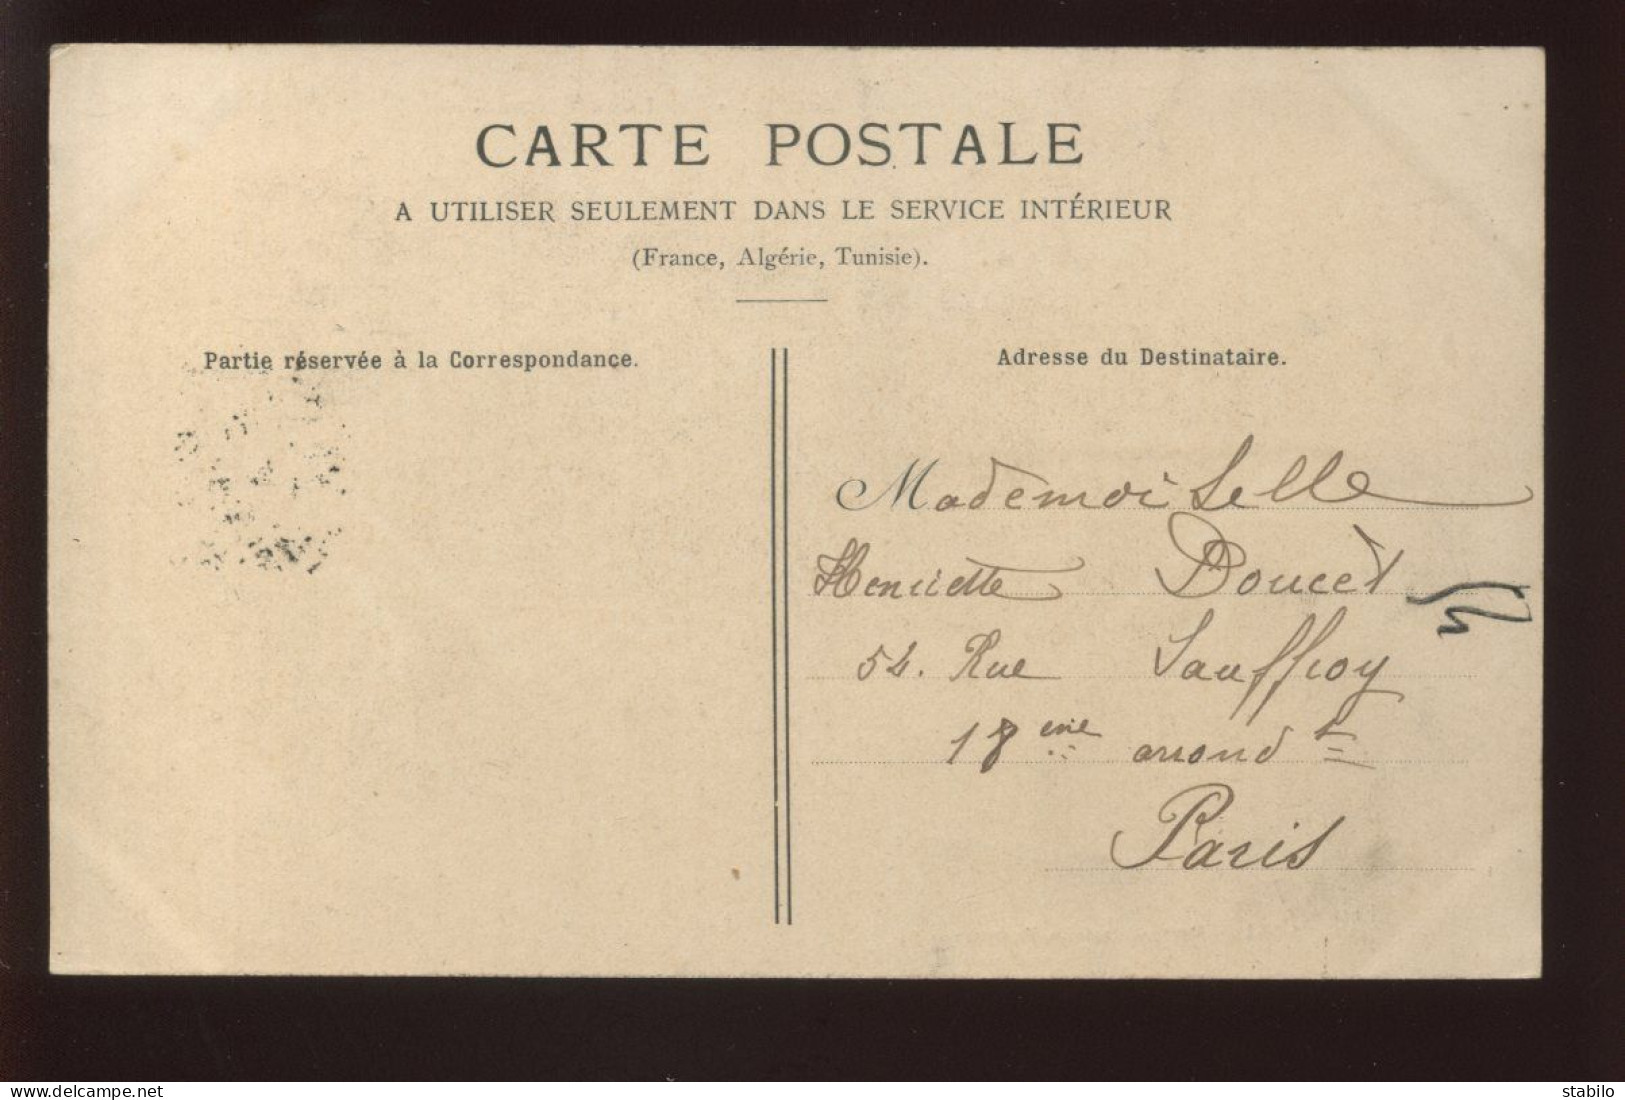 CARTE POSTALE
A UTILISER SEULEMENT DANS LE SERVICE INTÉRIEUR
(France, Algérie, Tunisie).
Partie réservée à la Correspondance.
Adresse du Destinataire.
Mademoiselle
Henriette Doucet
54. Rue Sauffroy
18eme arrondt
Paris
stabilo